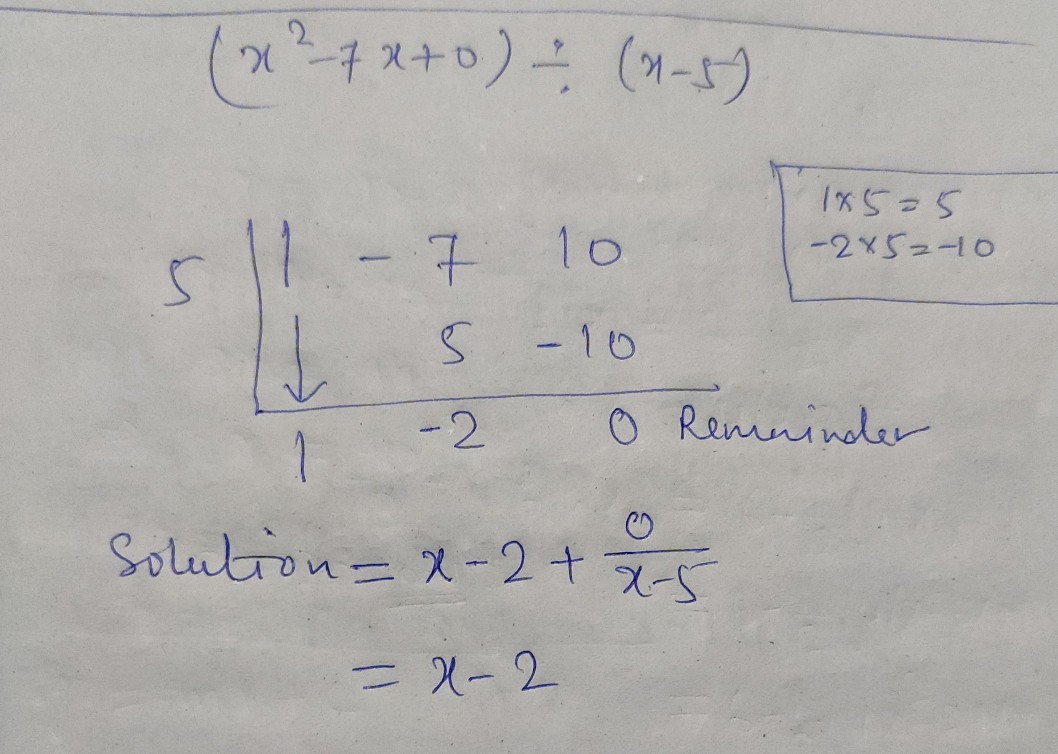 (x²-7x+0) ÷ (x-5)
1x5=5
-2x5=-10
5 1 -7 10
↓ 5 -10
1 -2 0 Remainder
Solution = x-2 + 0/x-5
= x-2